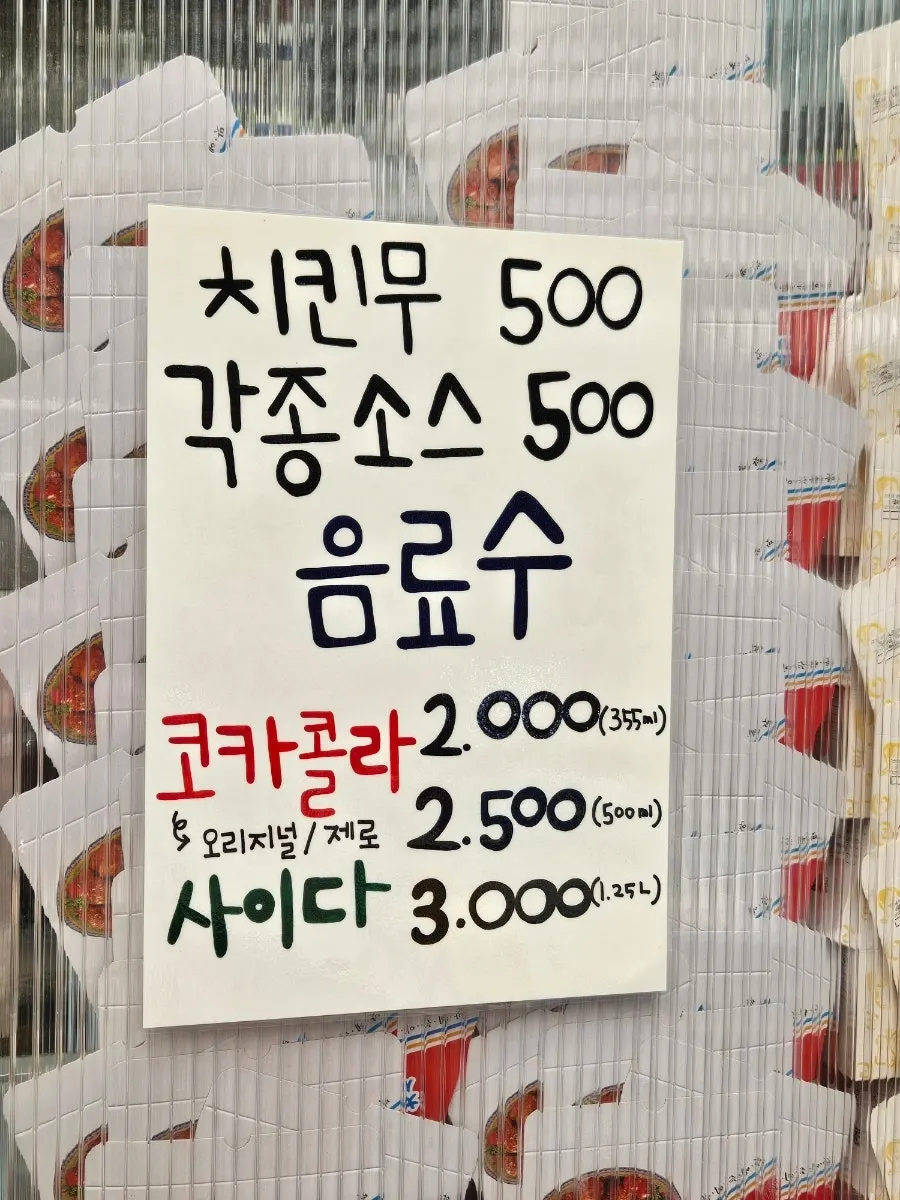 치킨무 500
각종소스 500
음료수
코카콜라 2.000(355ml)
↳ 오리지널/제로 2.500(500ml)
사이다 3.000(1.25L)